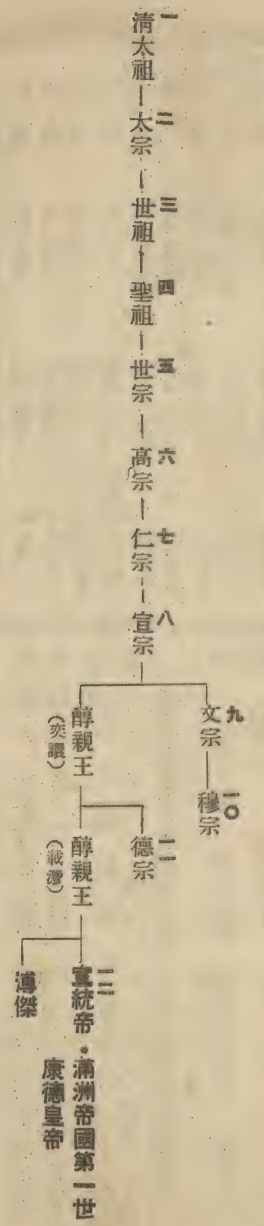 一 清太祖
二 太宗
三 世祖
四 聖祖
五 世宗
六 高宗
七 仁宗
八 宣宗
九 文宗
一〇 穆宗
醇親王
(奕譞)
一一 德宗
醇親王
(載灃)
一二 宣統帝・滿洲帝國第一世
康德皇帝
溥傑